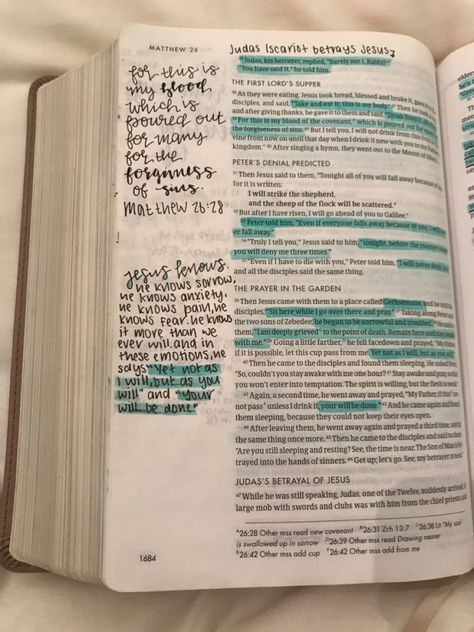 MATTHEW 26
Judas Iscariot betrays Jesus
for this is
my blood
which is
poured out
for many
for the
forgivness
of sins.
Matthew 26:28
Jesus knows.
he knows sorrow,
he knows anxiety,
he knows pain, he
knows fear. he knows
it more than we
ever will. and in
these emotions, he
says "Yet not as
I will, but as you
will" and "your
will be done."
1684
25 Judas, his betrayer, replied, "Surely not I, Rabbi?"
"You have said it," he told him.
THE FIRST LORD'S SUPPER
26 As they were eating, Jesus took bread, blessed and broke it, gave it to the
disciples, and said, "Take and eat it; this is my body."
and after giving thanks, he gave it to them and said, "Drink from it
28 For this is my blood of the covenant, which is poured out for many
the forgiveness of sins. 29 But I tell you, I will not drink from this fruit of
vine from now on until that day when I drink it new with you in my Father's
kingdom." 30 After singing a hymn, they went out to the Mount of Olives.
PETER'S DENIAL PREDICTED
31 Then Jesus said to them, "Tonight all of you will fall away because of
for it is written:
I will strike the shepherd,
and the sheep of the flock will be scattered.
32 But after I have risen, I will go ahead of you to Galilee."
33 Peter told him, "Even if everyone falls away because of you, I will
er fall away."
34 "Truly I tell you," Jesus said to him, "tonight, before the rooster
you will deny me three times."
35 "Even if I have to die with you," Peter told him, "I will never deny you
and all the disciples said the same thing.
THE PRAYER IN THE GARDEN
36 Then Jesus came with them to a place called Gethsemane, and he told
disciples, "Sit here while I go over there and pray." 37 Taking along Peter
the two sons of Zebedee, he began to be sorrowful and troubled.
them, "I am deeply grieved to the point of death. Remain here and stay awake
with me." 39 Going a little farther, he fell facedown and prayed, "My Father
if it is possible, let this cup pass from me. Yet not as I will, but as you will."
40 Then he came to the disciples and found them sleeping. He asked Peter
"So, couldn't you stay awake with me one hour? 41 Stay awake and pray, so that
you won't enter into temptation. The spirit is willing, but the flesh is weak."
42 Again, a second time, he went away and prayed, "My Father, if this can
not pass unless I drink it, your will be done." 43 And he came again and found
them sleeping, because they could not keep their eyes open.
44 After leaving them, he went away again and prayed a third time, saying
the same thing once more. 45 Then he came to the disciples and said to them
"Are you still sleeping and resting? See, the time is near. The Son of Man is be-
trayed into the hands of sinners. 46 Get up; let's go. See, my betrayer is near."
JUDAS'S BETRAYAL OF JESUS
47 While he was still speaking, Judas, one of the Twelve, suddenly arrived.
large mob with swords and clubs was with him from the chief priests and
A 26:28 Other mss read new covenant B 26:31 Zch 13:7 C 26:38 Lit "My soul
is swallowed up in sorrow D 26:39 Other mss read Drawing nearer
E 26:42 Other mss add cup F 26:42 Other mss add from me